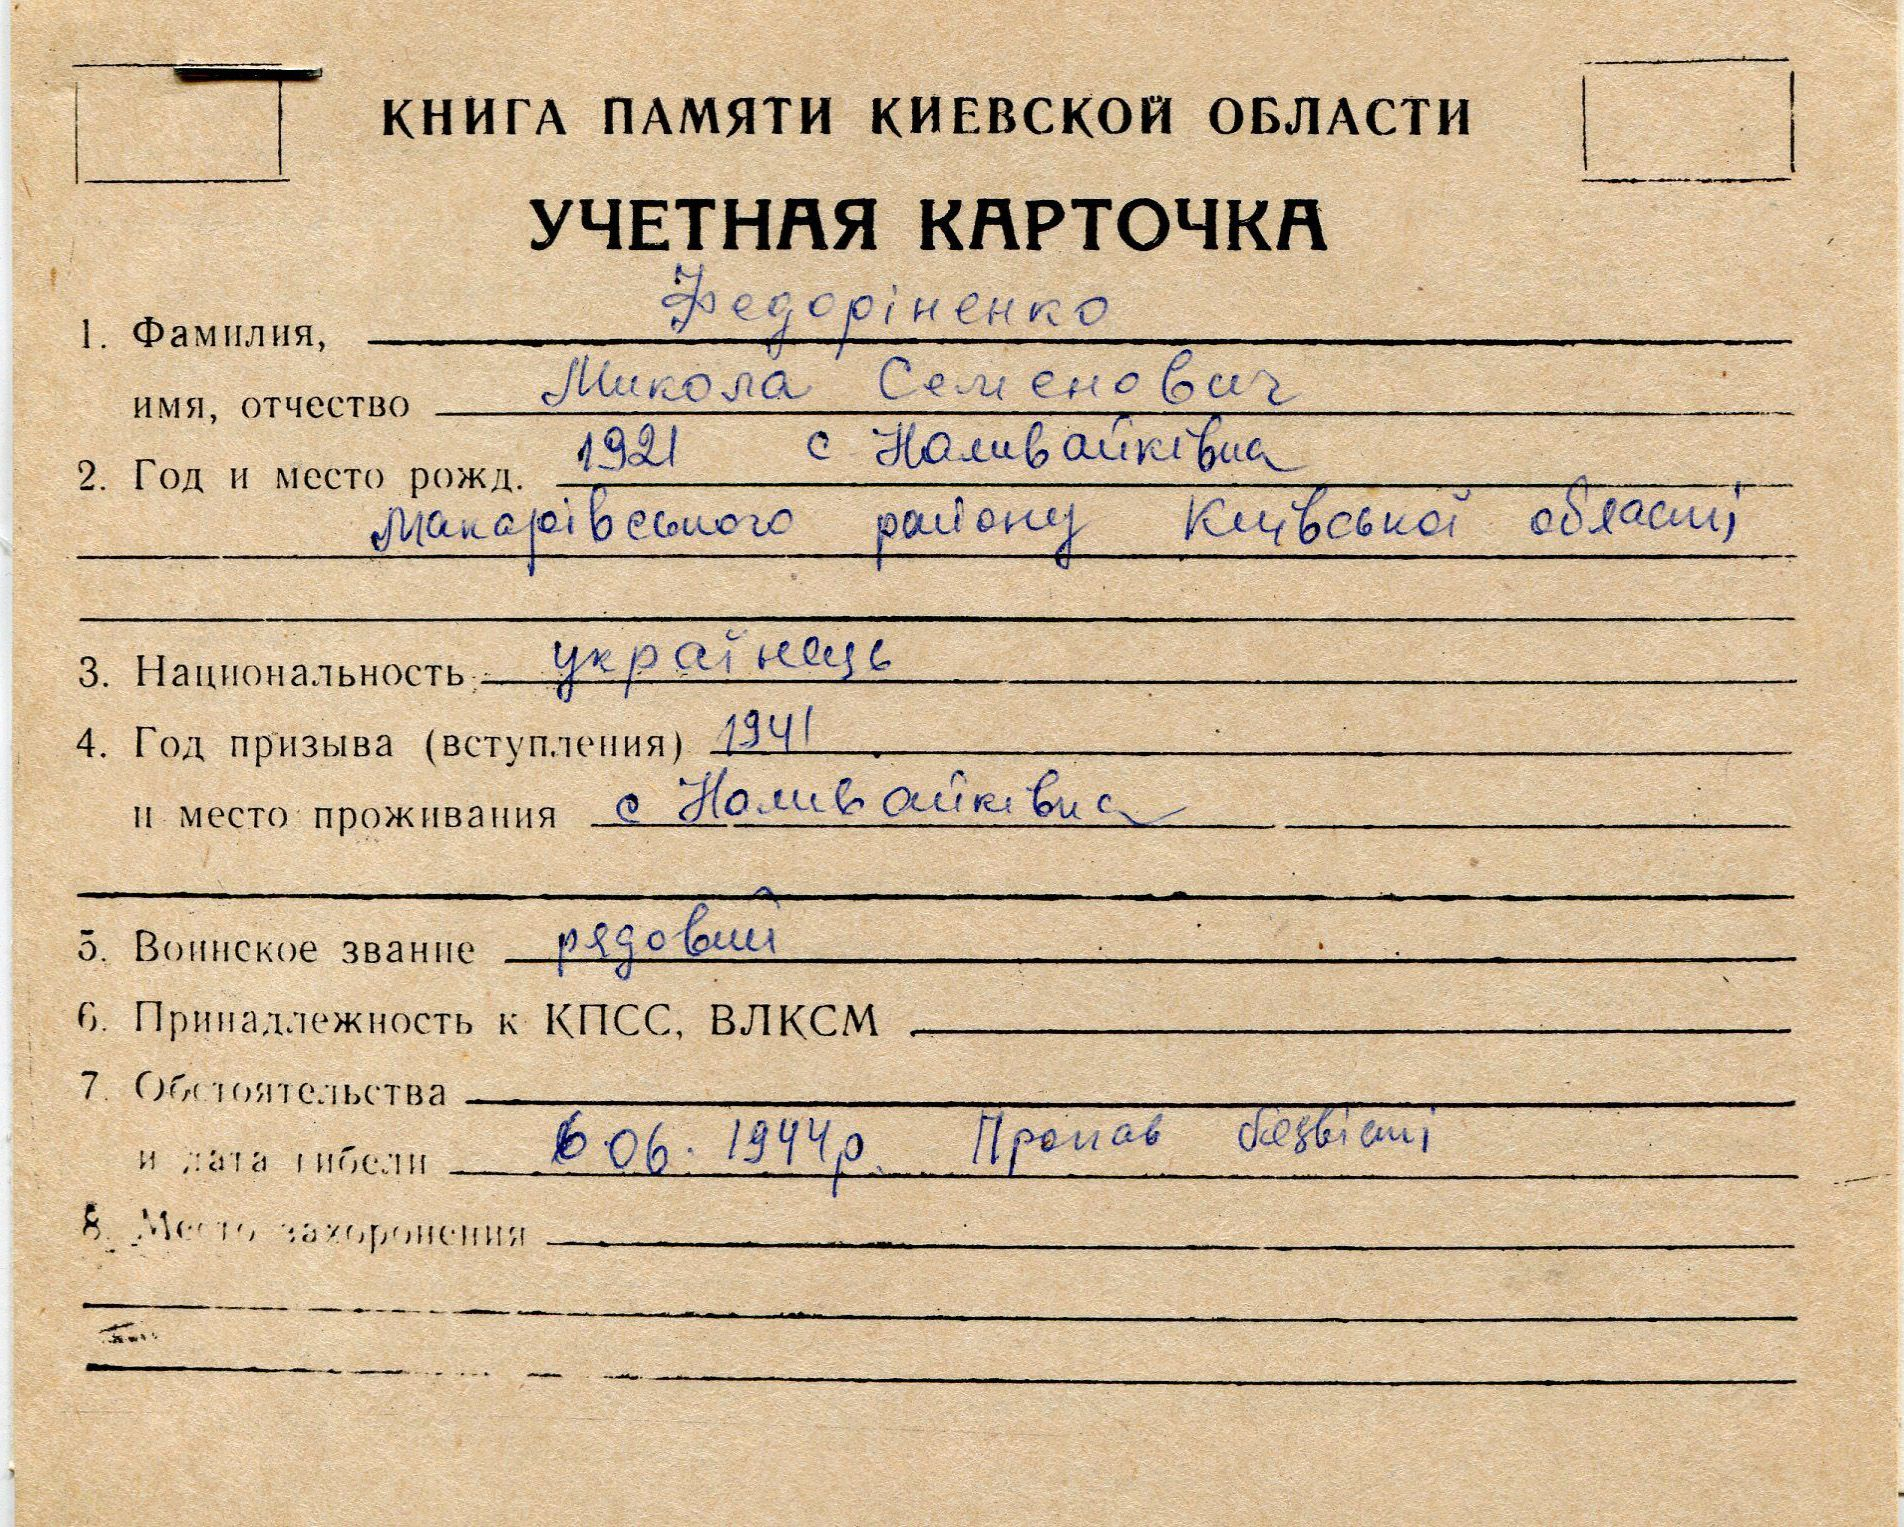 КНИГА ПАМЯТИ КИЕВСКОЙ ОБЛАСТИ
УЧЕТНАЯ КАРТОЧКА
1. Фамилия, Федоріненко
имя, отчество Микола Семенович
2. Год и место рожд. 1921 с Наливайківка
Макарівського району Київської області
3. Национальность українець
4. Год призыва (вступления) 1941
и место проживания с Наливайківка
5. Воинское звание рядовий
6. Принадлежность к КПСС, ВЛКСМ
7. Обстоятельства
и дата гибели 6 06. 1944р. Пропав безвісті
8. Место захоронения